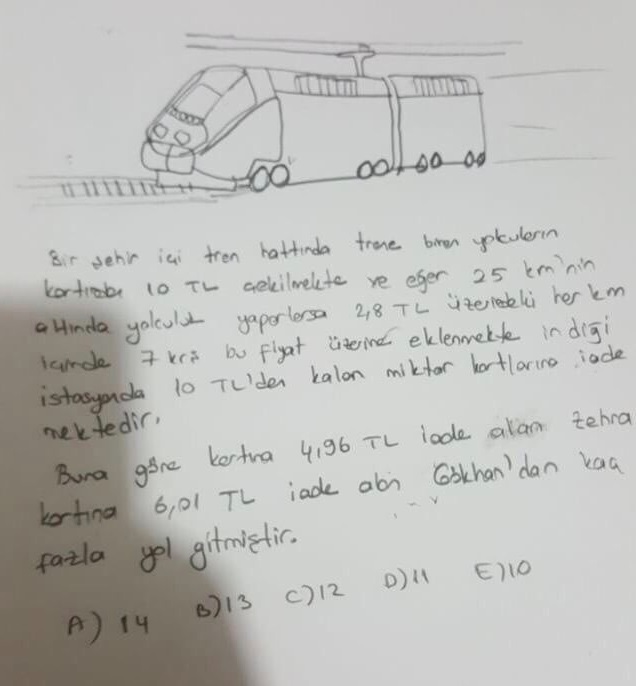 Bir şehir içi tren hattında trene binen yolcuların
kartından 10 TL çekilmekte ve eğer 25 km'nin
altında yolculuk yaparlarsa 2,8 TL üzerindeki her km
içinde 7 krş bu fiyat üzerine eklenmekte indiği
istasyonda 10 TL'den kalan miktar kartlarına iade
mektedir.
Buna göre kartına 4,96 TL iade alan zehra
kartına 6,01 TL iade alan Gökhan'dan kaç
fazla yol gitmiştir.
A) 14 B) 13 C) 12 D) 11 E) 10